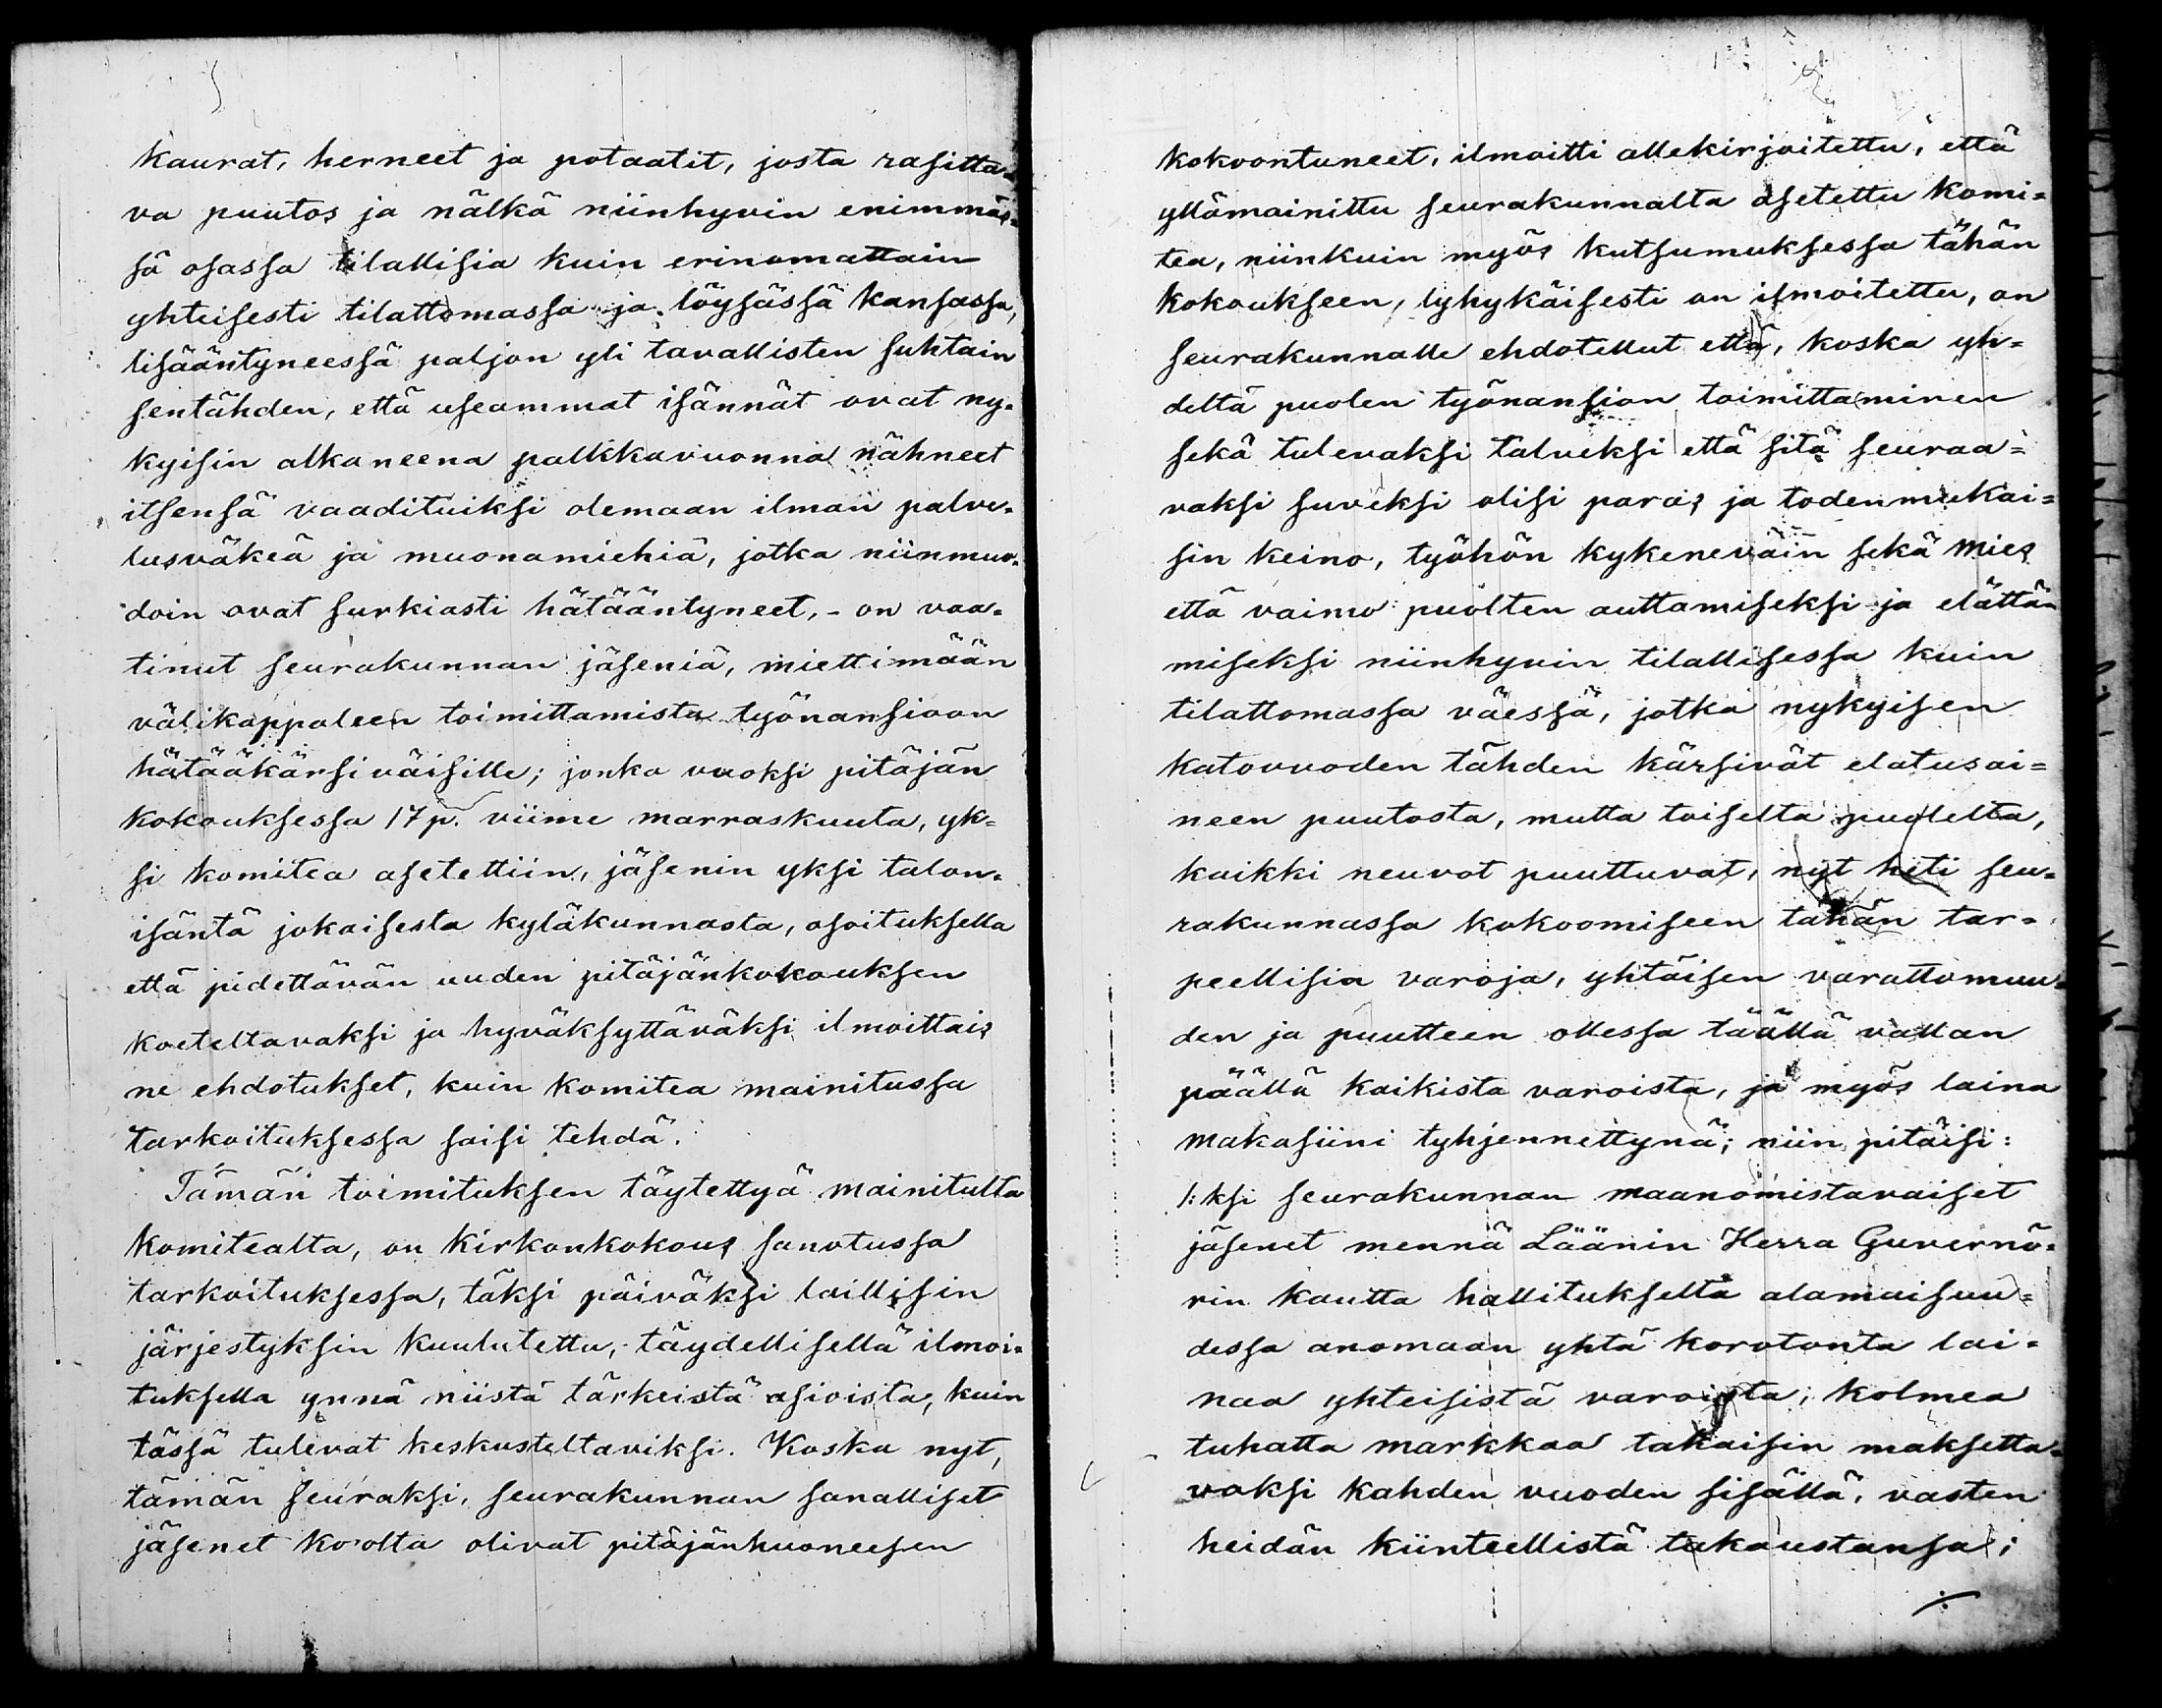 kaurat, herneet ja potaatit, josta rasitta=
va puutos ja nälkä niinhyvin enimmäs=
sä osassa tilallisia kuin erinomattain
yhteisesti tilattomassa ja löysässä kansassa,
lisääntyneessä paljon yli tavallisten suhtain
sentähden, että useammat isännät ovat ny=
kyisin alkaneena palkkavuonna nähneet
itsensä vaadituiksi olemaan ilman palve=
lusväkeä ja muonamiehiä, jotka niinmuo=
doin ovat surkiasti hätääntyneet, - on vaa=
tinut seurakunnan jäseniä, miettimään
välikappaleen toimittamista työnansioon
hätääkärsiväisille; jonka vuoksi pitäjän
kokouksessa 17 p. viime marraskuuta, yk=
si komitea asetettiin, jäsenin yksi talon=
isäntä jokaisesta kyläkunnasta, osoituksella
että pidettävän uuden pitäjänkokouksen
koeteltavaksi ja hyväksyttäväksi ilmoittais
ne ehdotukset, kuin komitea mainitussa
tarkoituksessa saisi tehdä.
Tämän toimituksen täytettyä mainitulta
komitealta, on kirkonkokous sanotussa
tarkoituksessa, täksi päiväksi laillisin
järjestyksin kuulutettu, täydellisellä ilmoi=
tuksella ynnä niistä tärkeistä asioista, kuin
tässä tulevat keskusteltaviksi. Koska nyt,
tämän seuraksi, seurakunnan sanalliset
jäsenet ko'olta olivat pitäjänhuoneesen
kokoontuneet, ilmoitti allekirjoitettu, että
yllämainittu seurakunnalta asetettu komi=
tea, niinkuin myös kutsumuksessa tähän
kokoukseen, lyhykäisesti on ilmoitettu, on
seurakunnalle ehdotellut että, koska yh=
deltä puolen työnansion toimittaminen
sekä tulevaksi talveksi että sitä seuraa=
vaksi suveksi olisi paras ja todenmukai=
sin keino, työhön kykeneväin sekä mies
että vaimo puolten auttamiseksi ja elättä=
miseksi niinhyvin tilallisessa kuin
tilattomassa väessä, jotka nykyisen
katovuoden tähden kärsivät elatusai=
neen puutosta, mutta toiselta puolelta,
kaikki neuvot puuttuvat, nyt heti seu=
rakunnassa kokoomiseen tähän tar=
peellisia varoja, yhtäisen varattomuu=
den ja puutteen ollessa täällä vallan
päällä kaikista varoista, ja myös laina
makasiini tyhjennettynä; niin pitäisi:
1:ksi seurakunnan maanomistavaiset
jäsenet mennä Läänin Herra Guvernö=
rin kautta hallitukselta alamaisuu=
dessa anomaan yhtä korotonta lai=
naa yhteisistä varoista, kolmea
tuhatta markkaa takaisin maksetta=
vaksi kahden vuoden sisällä, vasten
heidän kiinteellistä takaustansa;
⁒